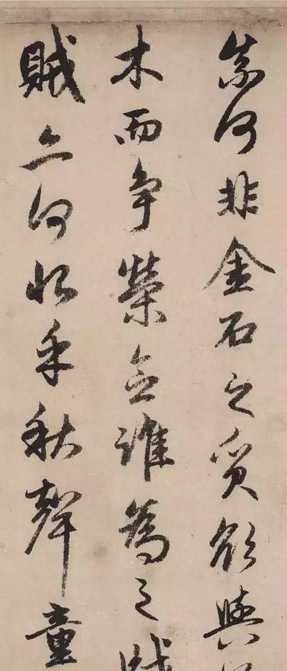 奈何非金石之質欲與
木而爭榮念誰為之
賊亦何恨乎秋聲童